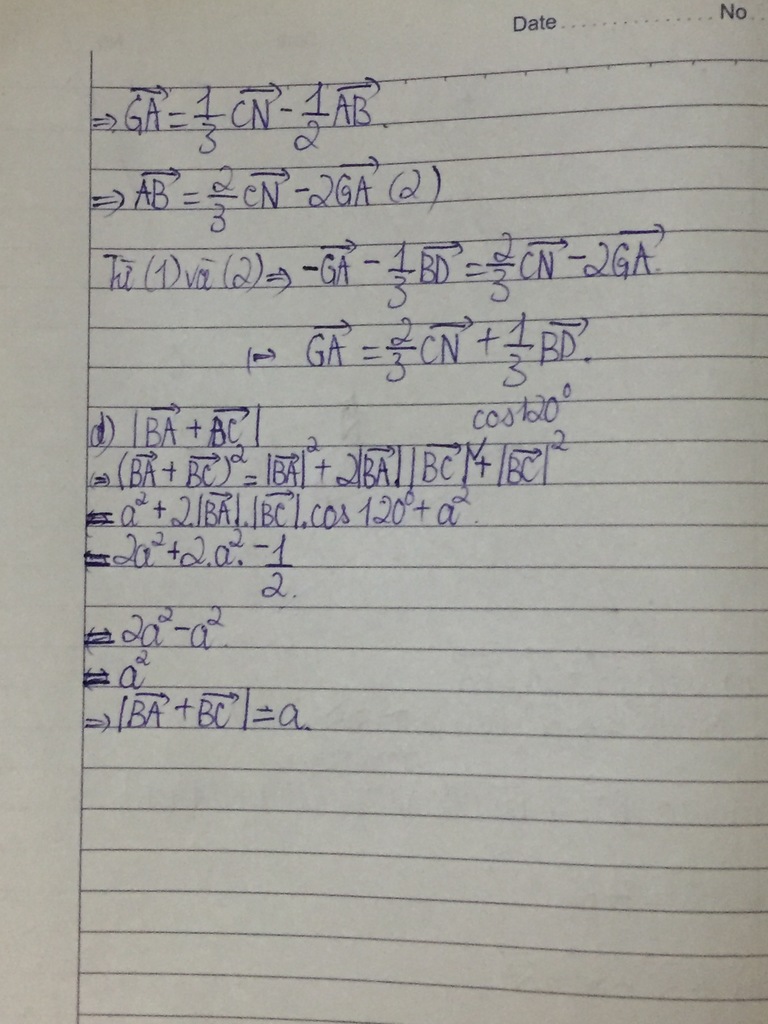 Date .................... No ..
⇒ $\overrightarrow{GA} = \frac{1}{3}\overrightarrow{CN} - \frac{1}{2}\overrightarrow{AB}$.
⇒ $\overrightarrow{AB} = \frac{2}{3}\overrightarrow{CN} - 2\overrightarrow{GA}$ (2)
Từ (1) và (2) ⇒ $-\overrightarrow{GA} - \frac{1}{3}\overrightarrow{BD} = \frac{2}{3}\overrightarrow{CN} - 2\overrightarrow{GA}$.
⇒ $\overrightarrow{GA} = \frac{2}{3}\overrightarrow{CN} + \frac{1}{3}\overrightarrow{BD}$.
d) $|\overrightarrow{BA} + \overrightarrow{BC}|$
cos120°
⇒ $(\overrightarrow{BA} + \overrightarrow{BC})^2 = |\overrightarrow{BA}|^2 + 2|\overrightarrow{BA}||\overrightarrow{BC}| + |\overrightarrow{BC}|^2$
= $a^2 + 2.|\overrightarrow{BA}|.|\overrightarrow{BC}|.\cos 120° + a^2$.
= $2a^2 + 2.a^2.\frac{-1}{2}$.
= $2a^2 - a^2$.
= $a^2$
⇒ $|\overrightarrow{BA} + \overrightarrow{BC}| = a$.